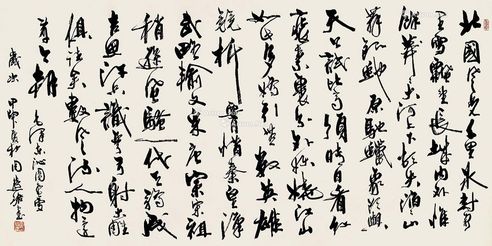 北國風光千里冰封
萬里雪飄望長城內外惟
餘莽莽大河上下頓失滔滔山
舞銀蛇原馳蠟象欲與
天公試比高須晴日看紅
裝素裹分外妖嬈江山
如此多嬌引無數英雄
競折腰惜秦皇漢
武略輸文采唐宗宋祖
稍遜風騷一代天驕成
吉思汗只識彎弓射大雕
俱往矣數風流人物還
看今朝 毛澤東沁園春雪
歲次甲申